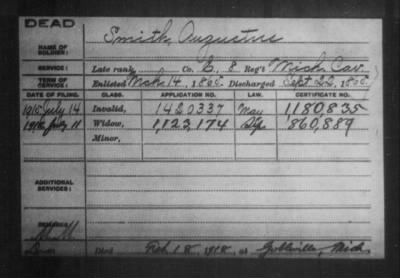 DEAD
NAME OF SOLDIER: Smith, Augustus
SERVICE: Late rank, Co. E, 8 Reg't Mich Cav.
TERM OF SERVICE: Enlisted Mch 14, 1865 Discharged Sept 22, 1865.
DATE OF FILING. CLASS. APPLICATION NO. LAW. CERTIFICATE NO.
July 14 Invalid, 1420337 May 1180835
1918, July 11 Widow, 1,123,174 860,889
Minor,
ADDITIONAL SERVICES:
REMARKS:
Died Feb 18, 1918, at Gobleville, Mich